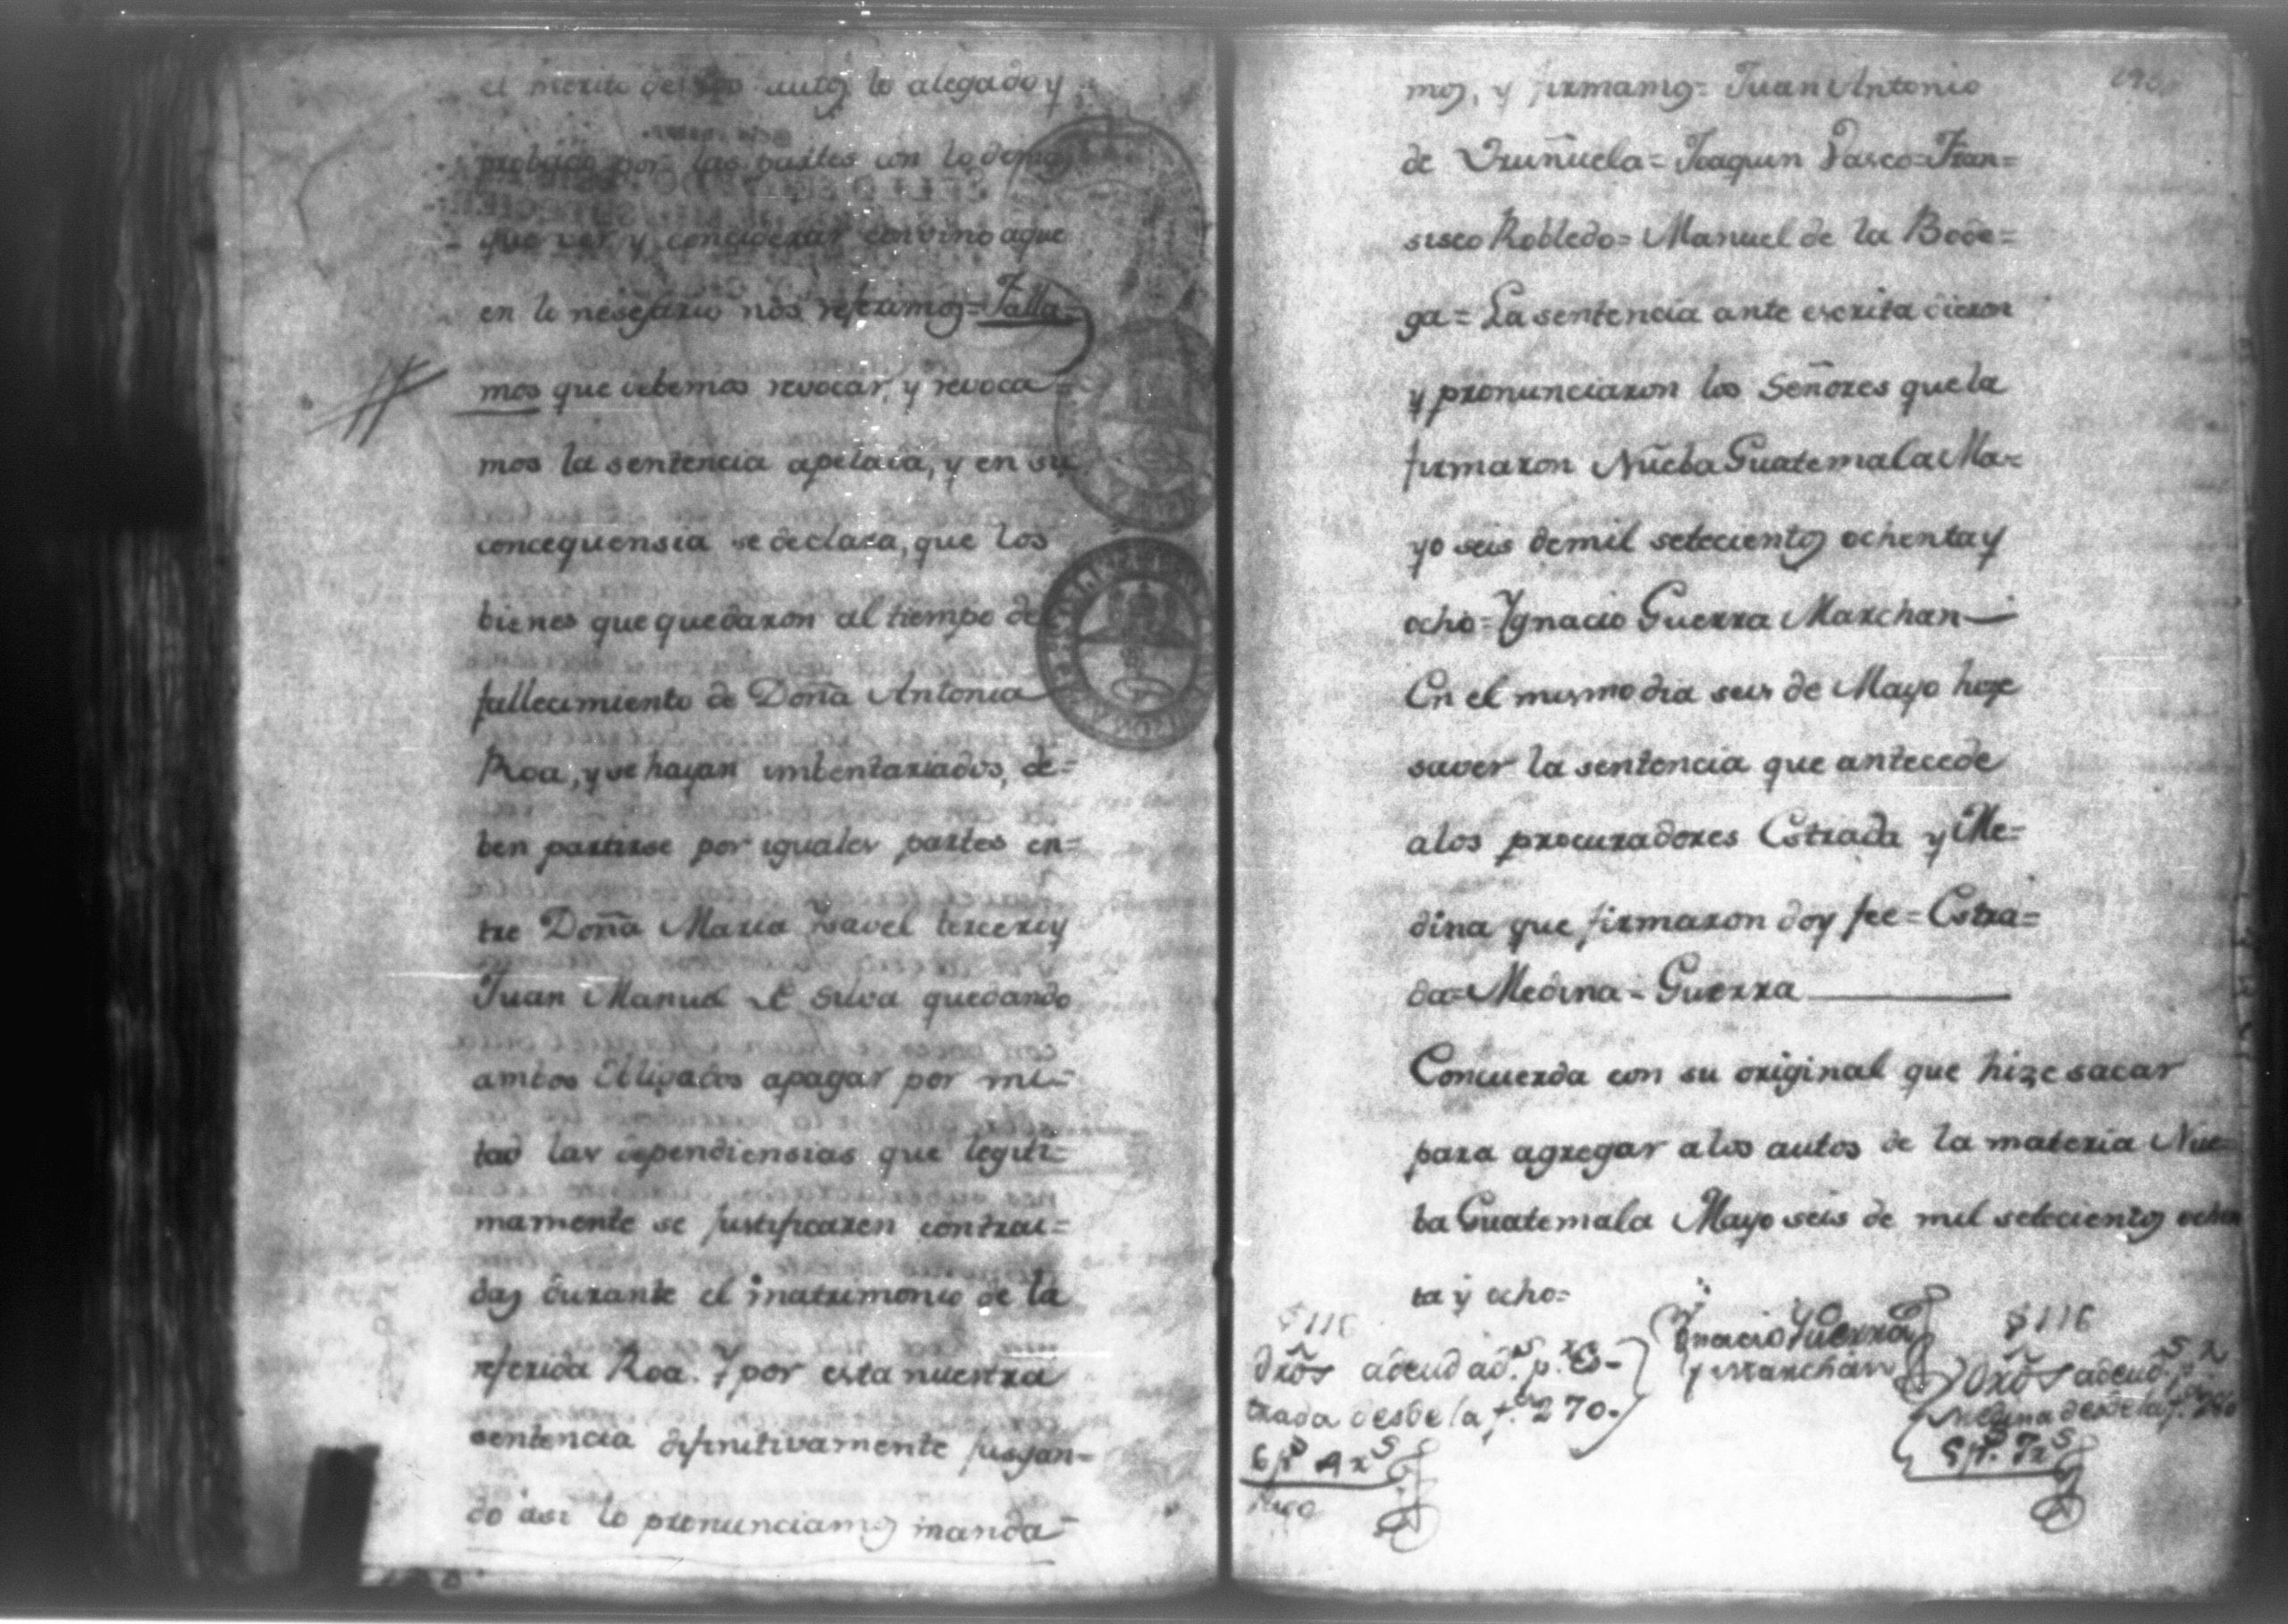 el merito de los autos lo alegado y
probado por las partes con lo demas
que ver y conciderar convino aque
en lo nesesario nos referimos= Falla=
mos que debemos revocar, y revoca=
mos la sentencia apelada, y en su
concequensia se declara, que los
bienes que quedaron al tiempo de
fallecimiento de Doña Antonia
Roa, y se hayan imbentariados, de=
ben partirse por iguales partes en=
tre Doña Maria Ysavel tercero y
Juan Manuel de Silva quedando
ambos obligados apagar por mi=
tad las dependiensias que legiti=
mamente se justificaren contrai=
das durante el matrimonio de la
referida Roa. Y por esta nuestra
sentencia difinitivamente jusgan=
do asi lo pronunciamos manda=
mos, y firmamos= Juan Antonio
de Uruñuela= Joaquin Vasco=Fran=
sisco Robledo= Manuel de la Bode=
ga= La sentencia ante escrita dieron
y pronunciaron los Señores que la
firmaron Nueba Guatemala Ma=
yo seis demil setecientos ochenta y
ocho= Ygnacio Guerra Marchan
En el mismo dia seis de Mayo hize
saver la sentencia que antecede
alos procuradores Estrada y Me=
dina que firmaron doy fee= Estra=
da= Medina= Guerra
Concuerda con su original que hize sacar
para agregar alos autos de la materia Nue=
ba Guatemala Mayo seis de mil setecientos ochen
ta y ocho=
$116
Ygnacio Guerra
y Marchán
$116
dros adeudads. p. Es-
trada desde la f. 270.
6ps 4rs
Dros adeuds. p.
Medina desde la f.
5ps. 7rs